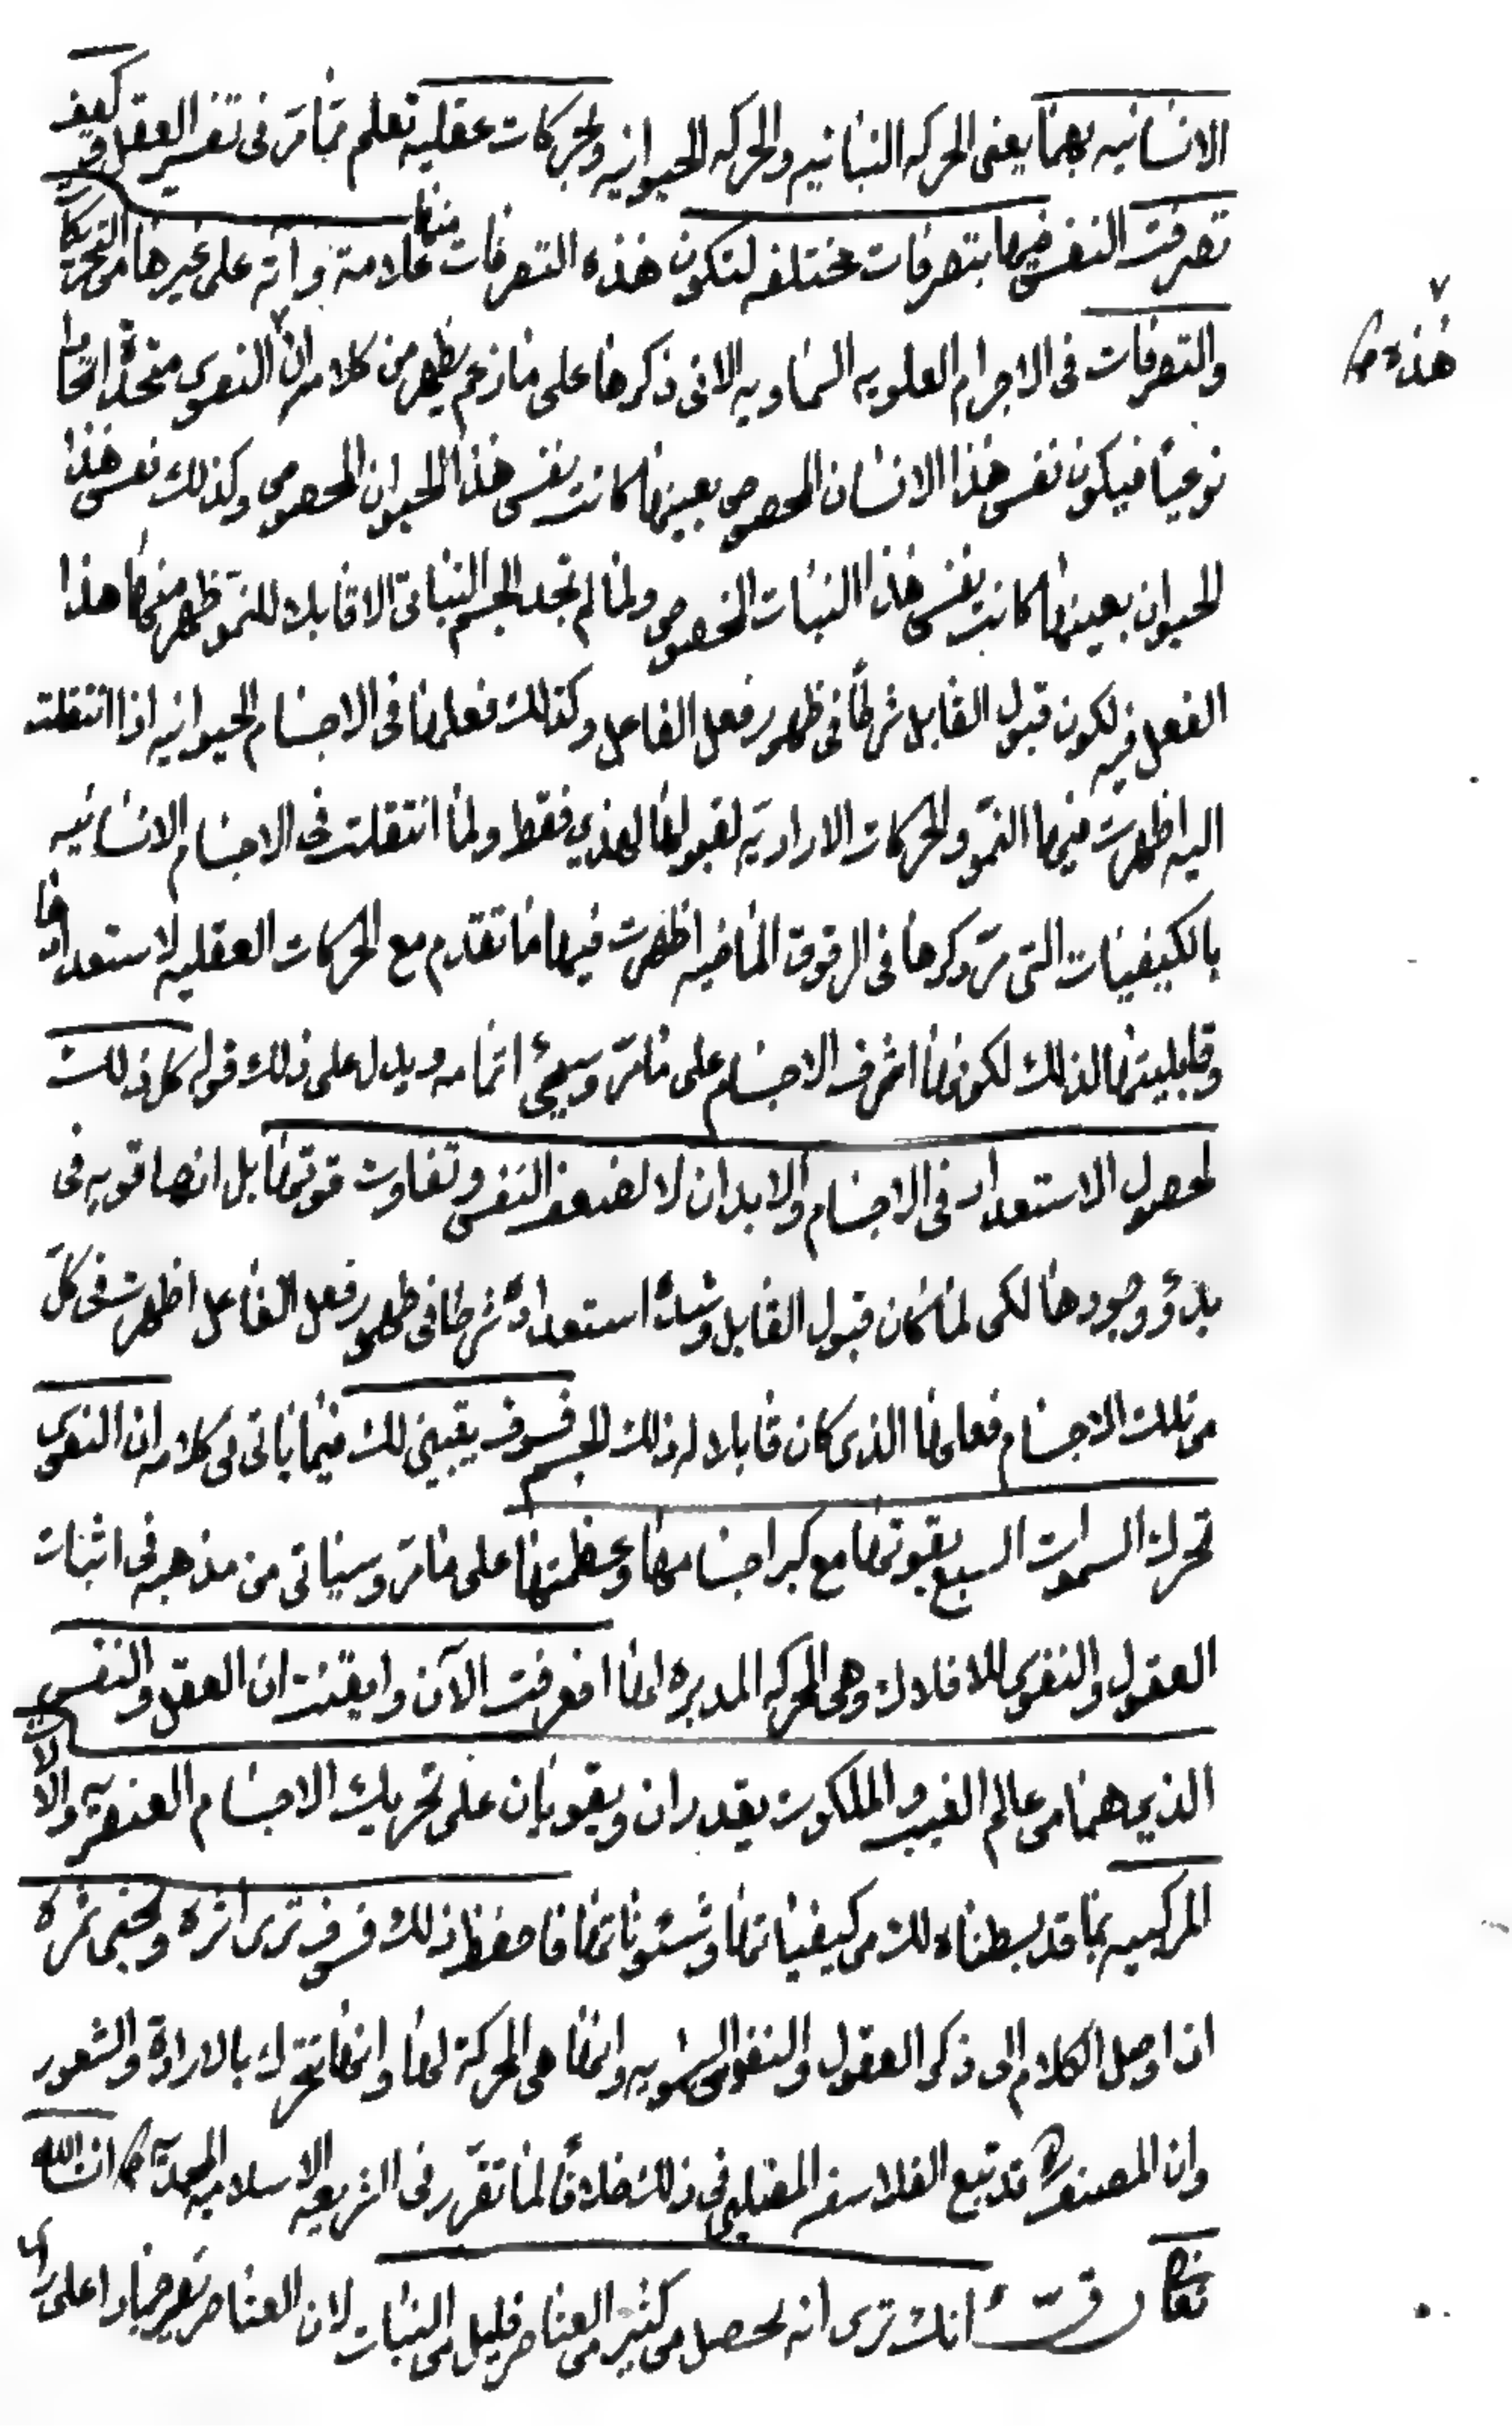 الانسانيه بهما يعنى الحركه النباتيه والحركه الحيوانيه وبحركات عقليه تعلم مما مر فى تفسير العقل وكيف
تصرفت النفس فيها بتصرفات مختلفه لتكون هذه التصرفات منها علامة وآية على غيرها من التحريكات
والتصرفات فى الاجرام العلويه السماويه الاتى ذكرها على ما زعم يظهر من كلامه ان هذه النفوس متحدة اتحادا
هذه صح
نوعيا فيكون نفس هذا الانسان المخصوص بعينها كانت نفس هذا الحيوان المخصوص وكذلك نفس هذا
الحيوان بعينها كانت نفس هذا النبات المخصوص ولما لم تجد الجسم النباتى الا قابلا للنمو ظهر منها هذا
الفعل فيه لكون قبول القابل شرطا فى ظهور فعل الفاعل وكذلك فعلها فى الاجسام الحيوانيه اذا انتقلت
اليه اظهرت فيها النمو والحركات الاراديه لقبولها لهذين فقط ولما انتقلت فى الاجسام الانسانيه
بالكيفيات التى مر ذكرها فى الرقوق الماضيه اظهرت فيها ما تقدم مع الحركات العقليه لاستعدادها
وقابليتها لذلك لكونها اشرف الاجسام على ما مر وسيجئ اتمامه ويدل على ذلك قوله كل ذلك
لحصول الاستعداد فى الاجسام والابدان لا لضعف النفس وتفاوت قوتها بل انها قويه فى
بدؤ وجودها لكن لما كان قبول القابل وشدة استعداده شرطا فى ظهور فعل الفاعل اظهرت فى كل
من تلك الاجسام فعلها الذى كان قابلا له ذلك الجسم فسوف يتبين لك فيما ياتى فى كلامه ان النفوس
تحرك السموات السبع بقوتها مع كبر اجسامها وعظمتها على ما مر وسياتى من مذهبه فى اثبات
العقول والنفوس للافلاك وهى المحركه المدبره لها افعرفت الآن وايقنت ان العقل والنفس
الذين هما من عالم الغيب والملكوت يقدران ويقويان على تحريك الاجسام العنصريه والآلات
المركبيه بما قد بسطناه لك من كيفياتها وشئوناتها فاحفظ ذلك فسوف ترى اثره وتجنى ثمره
اذا وصل الكلام الى ذكر العقول والنفوس السماويه وانها هى المحركة لها وانها تتحرك بالارادة والشعور
وان المصنف قد تبع الفلاسفه فى ذلك خلافا لما تقرر فى الشريعه الاسلاميه المحمديه صلى ان شاء الله
تعالى رق انك ترى انه يحصل من كثير من العناصر قليل من النبات لان العناصر